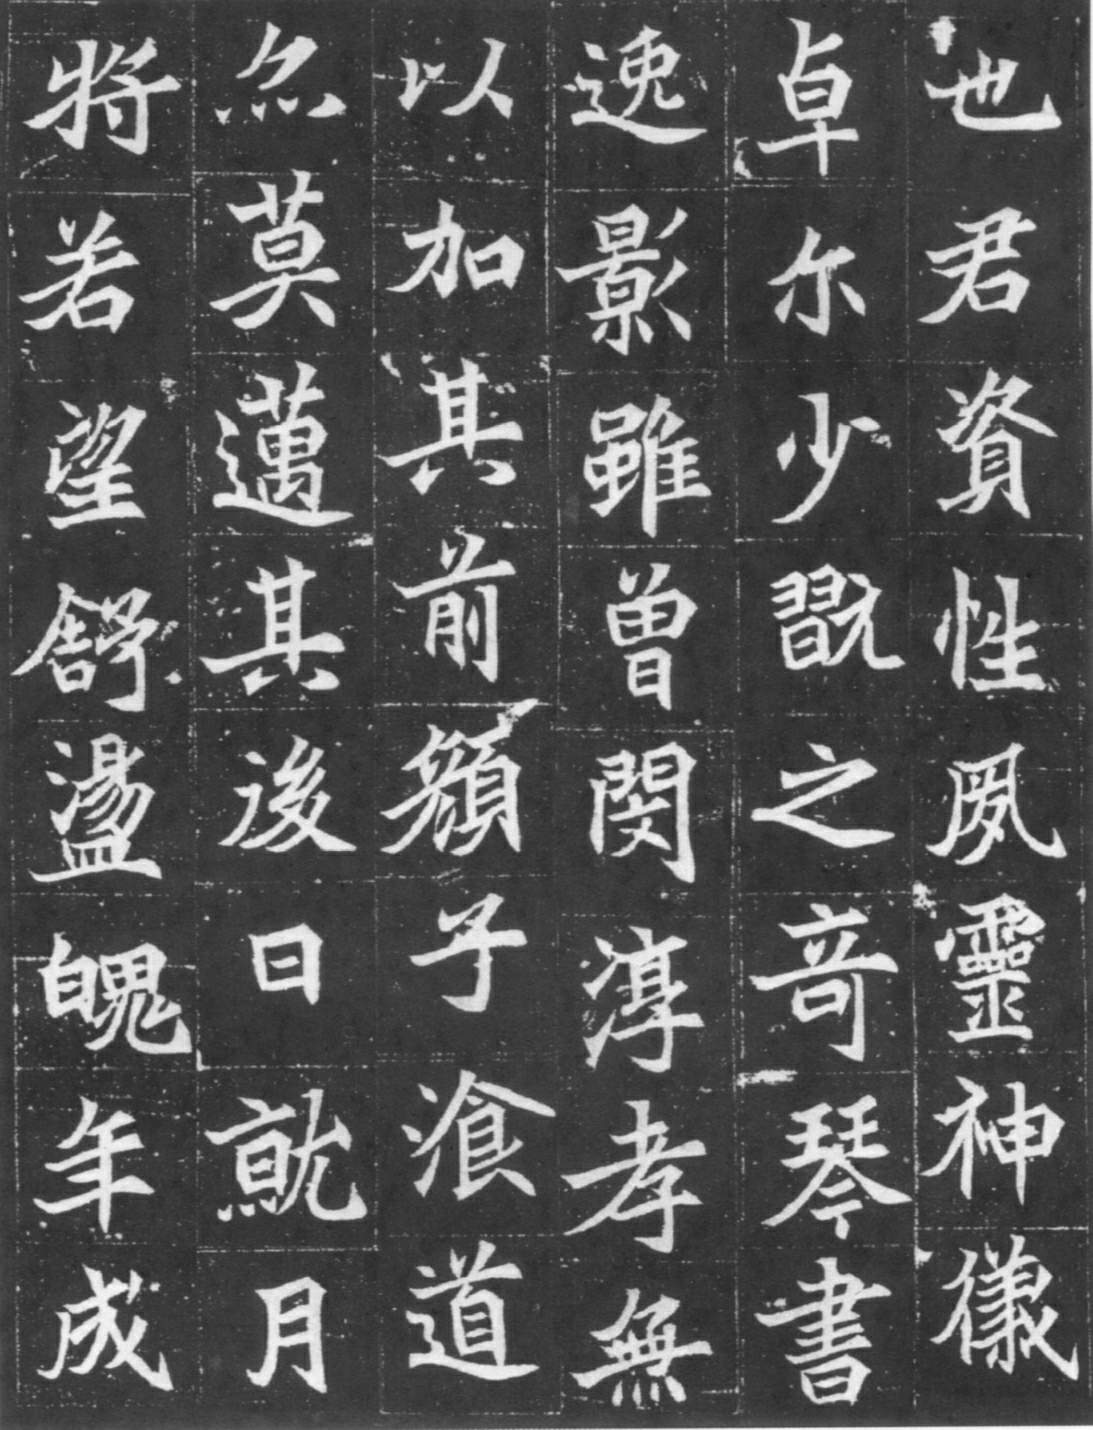 也君資性夙靈神儀
卓尔少翫之奇琴書
逸影雖曾閔淳孝無
以加其前顏子湌道
亦莫邁其後日就月
將若望舒盪魄年成